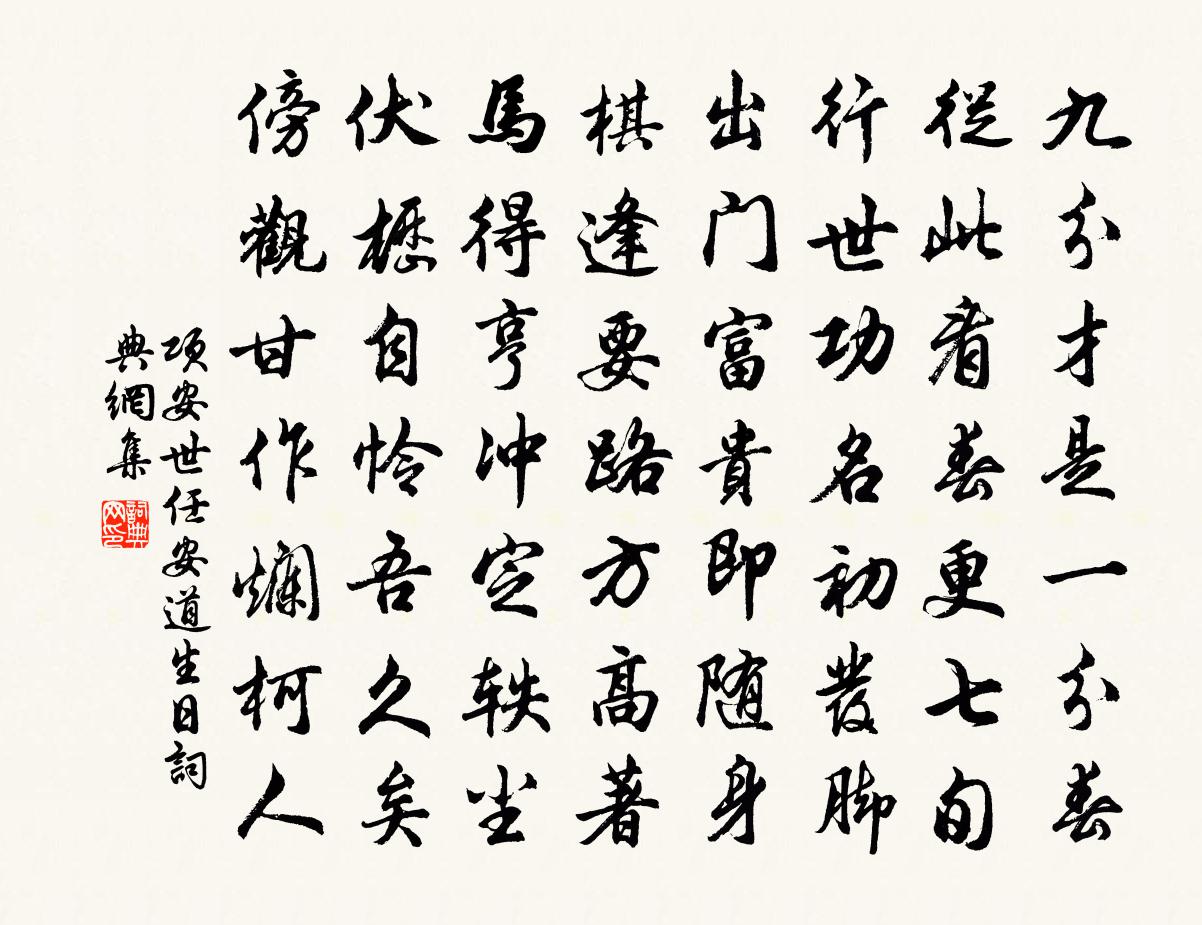 九分才是一分春
從此看春更七旬
行世功名初發脚
出门富貴即随身
棋逢要路方高著
馬得亨冲定軼尘
伏櫪自怜吾久矣
傍觀甘作爛柯人
项安世任安道生日詞
典網集
詞典网印